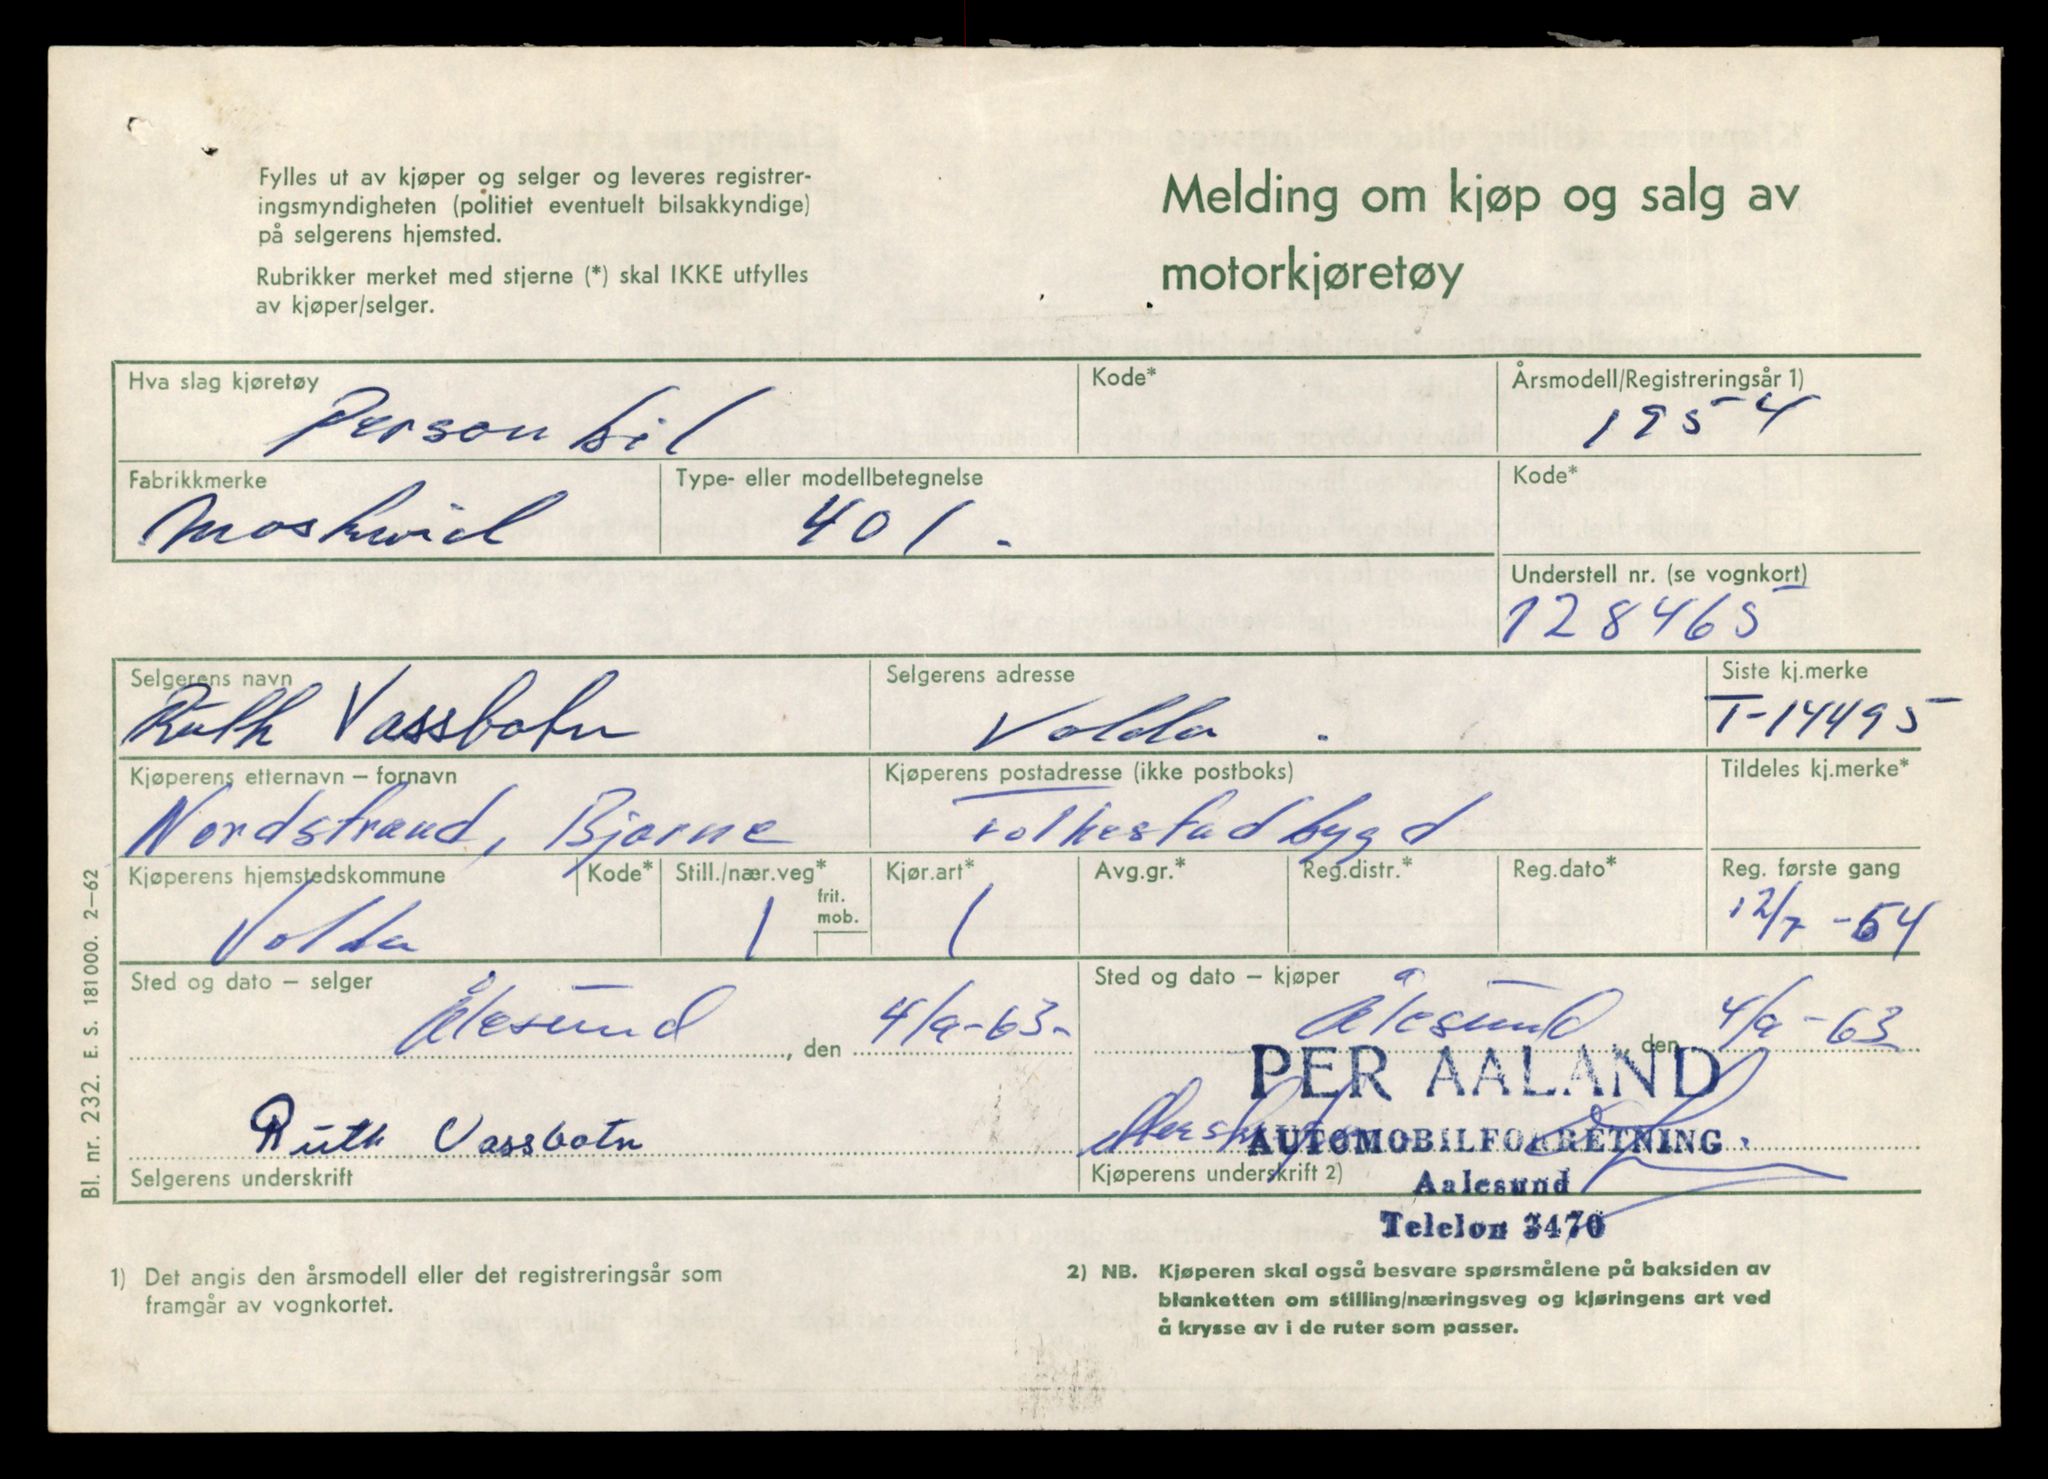 Fylles ut av kjøper og selger og leveres registrer-
ingsmyndigheten (politiet eventuelt bilsakkyndige)
på selgerens hjemsted.
Rubrikker merket med stjerne (*) skal IKKE utfylles
av kjøper/selger.
Melding om kjøp og salg av
motorkjøretøy
Hva slag kjøretøy
Kode*
Årsmodell/Registreringsår 1)
Personbil
1954
Fabrikkmerke
Type- eller modellbetegnelse
Kode*
Moskwich
401.
Understell nr. (se vognkort)
128465
Selgerens navn
Selgerens adresse
Siste kj.merke
Ruth Vassbotn
Volda.
T-14495
Kjøperens etternavn – fornavn
Kjøperens postadresse (ikke postboks)
Tildeles kj.merke*
Nordstrand, Bjarne
Folkestadbygd
Kjøperens hjemstedskommune
Kode*
Still./nær.veg*
frit.
mob.
Kjør.art*
Avg.gr.*
Reg.distr.*
Reg.dato*
Reg. første gang
Volda
1
1
12/7-54
Sted og dato – selger
Sted og dato – kjøper
Ålesund, den 4/9-63-
Ålesund den 4/9-63
PER AALAND
Ruth Vassbotn
AUTOMOBILFORRETNING
Selgerens underskrift
Kjøperens underskrift 2)
Aalesund
Telefon 3470
1) Det angis den årsmodell eller det registreringsår som
framgår av vognkortet.
2) NB. Kjøperen skal også besvare spørsmålene på baksiden av
blanketten om stilling/næringsveg og kjøringens art ved
å krysse av i de ruter som passer.
Bl. nr. 232. E. S. 181000. 2–62